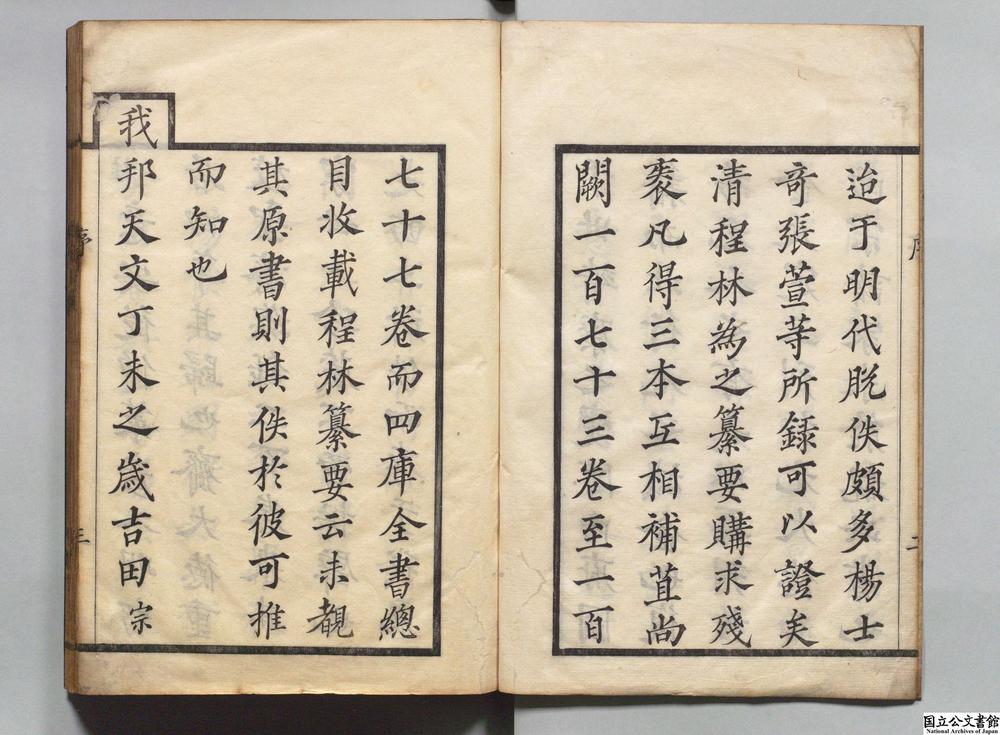 迨于明代脫佚頗多楊士
奇張萱等所錄可以證矣
清程林為之纂要購求殘
袠凡得三本互相補苴尚
闕一百七十三卷至一百
序
二
七十七卷而四庫全書總
目收載程林纂要云未覩
其原書則其佚於彼可推
而知也
我邦天文丁未之歲吉田宗
序
三
国立公文書館
National Archives of Japan